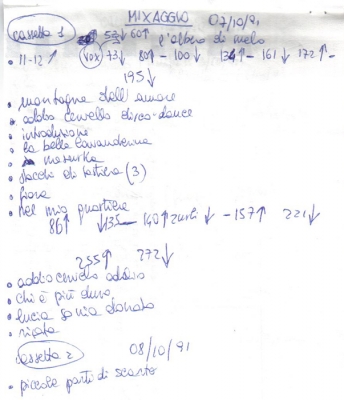 MIXAGGIO 07/10/91
cassetta 1 53↓ 60↑ l'albero di melo
• 11-12↑ VOX 73↓ 80↑ - 100↓ 134↑ - 161↓ 172↑ -
195↓
• montagna dell'amore
• addio cervello disco-dance
• introduzione
• la bella lavanderina
• mazurka
• sacchi di tortiera (3)
• fiera
• nel mio quartiere
86↑ ↓135 - 140↑ ↓ - 157↑ 221↓
255↑ 272↓
• addio cervello addio
• chi è più
• lucia sonia donato
• risata
cassetta 2 08/10/91
• piccole parti di scarto